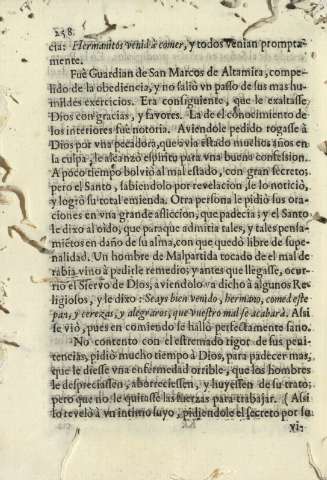 258.
cia: Hermanitos venid à comer, y todos venian prompta-
mente.
Fuè Guardian de San Marcos de Altamira, compe-
lido de la obediencia, y no saliò vn passo de sus mas hu-
mildes exercicios. Era consiguiente, que le exaltasse
Dios con gracias, y favores. La de el conocimiento de
los interiores fue notoria. Aviendole pedido rogasse à
Dios por vna pecadora, que avia estado muchos años en
la culpa, le alcanzò espiritu para vna buena confession.
A poco tiempo bolviò al mal estado, con gran secreto;
pero el Santo, sabiendolo por revelacion, le lo noticiò,
y logrò su total emienda. Otra persona le pidiò sus ora-
ciones en vna grande afliccion, que padecia; y el Santo
le dixo al oìdo, que para que admitia tales, y tales pensa-
mietos en daño de su alma, con que quedò libre de su pe-
nalidad. Un hombre de Malpartida tocado de el mal de
rabia vino à pedirle remedio; y antes que llegasse, ocur-
riò el Siervo de Dios, aviendolo dicho à algunos Re-
ligiosos, y le dixo: Seays bien venido, hermano, comed este
pan, y cerezas, y alegraros, que vuestro mal se acabarà. Assi
se viò, pues en comiendo se hallò perfectamente sano.
No contento con el estremado rigor de sus peni-
tencias, pidiò mucho tiempo à Dios, para padecer mas,
que le diesse vna enfermedad orrible, que los hombres
le despreciassen, aborreciessen, y huyessen de su trato;
pero que no le quitasse las fuerzas para trabajar. (Assi
lo revelò à vn intimo suyo, pidiendole el secreto por su
vi-